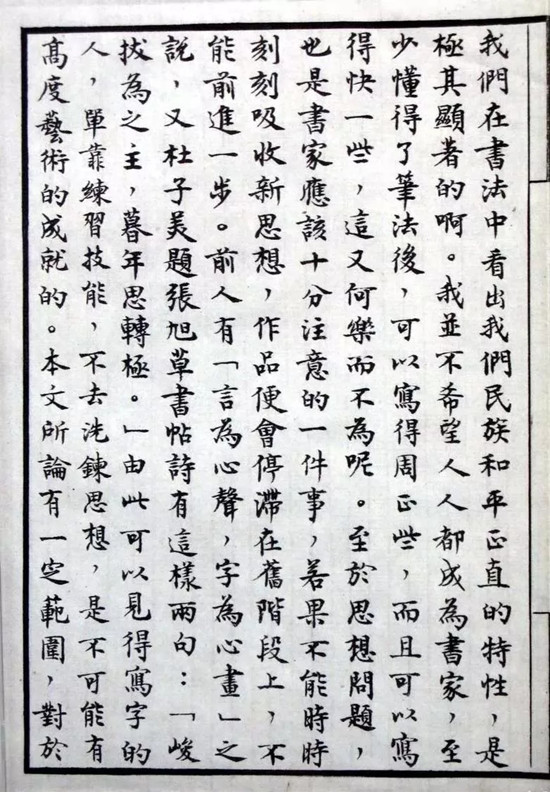 我們在書法中看出我們民族和平正直的特性，是
極其顯著的啊。我並不希望人人都成為書家，至
少懂得了筆法後，可以寫得周正些，而且可以寫
得快一些，這又何樂而不為呢。至於思想問題，
也是書家應該十分注意的一件事，若果不能時時
刻刻吸收新思想，作品便會停滯在舊階段上，不
能前進一步。前人有「言為心聲，字為心畫」之
說，又杜子美題張旭草書帖詩有這樣兩句：「峻
拔為之主，暮年思轉極。」由此可以見得寫字的
人，單靠練習技能，不去洗鍊思想，是不可能有
高度藝術的成就的。本文所論有一定範圍，對於